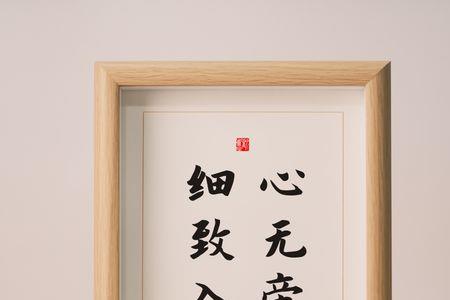 心无旁
细致入